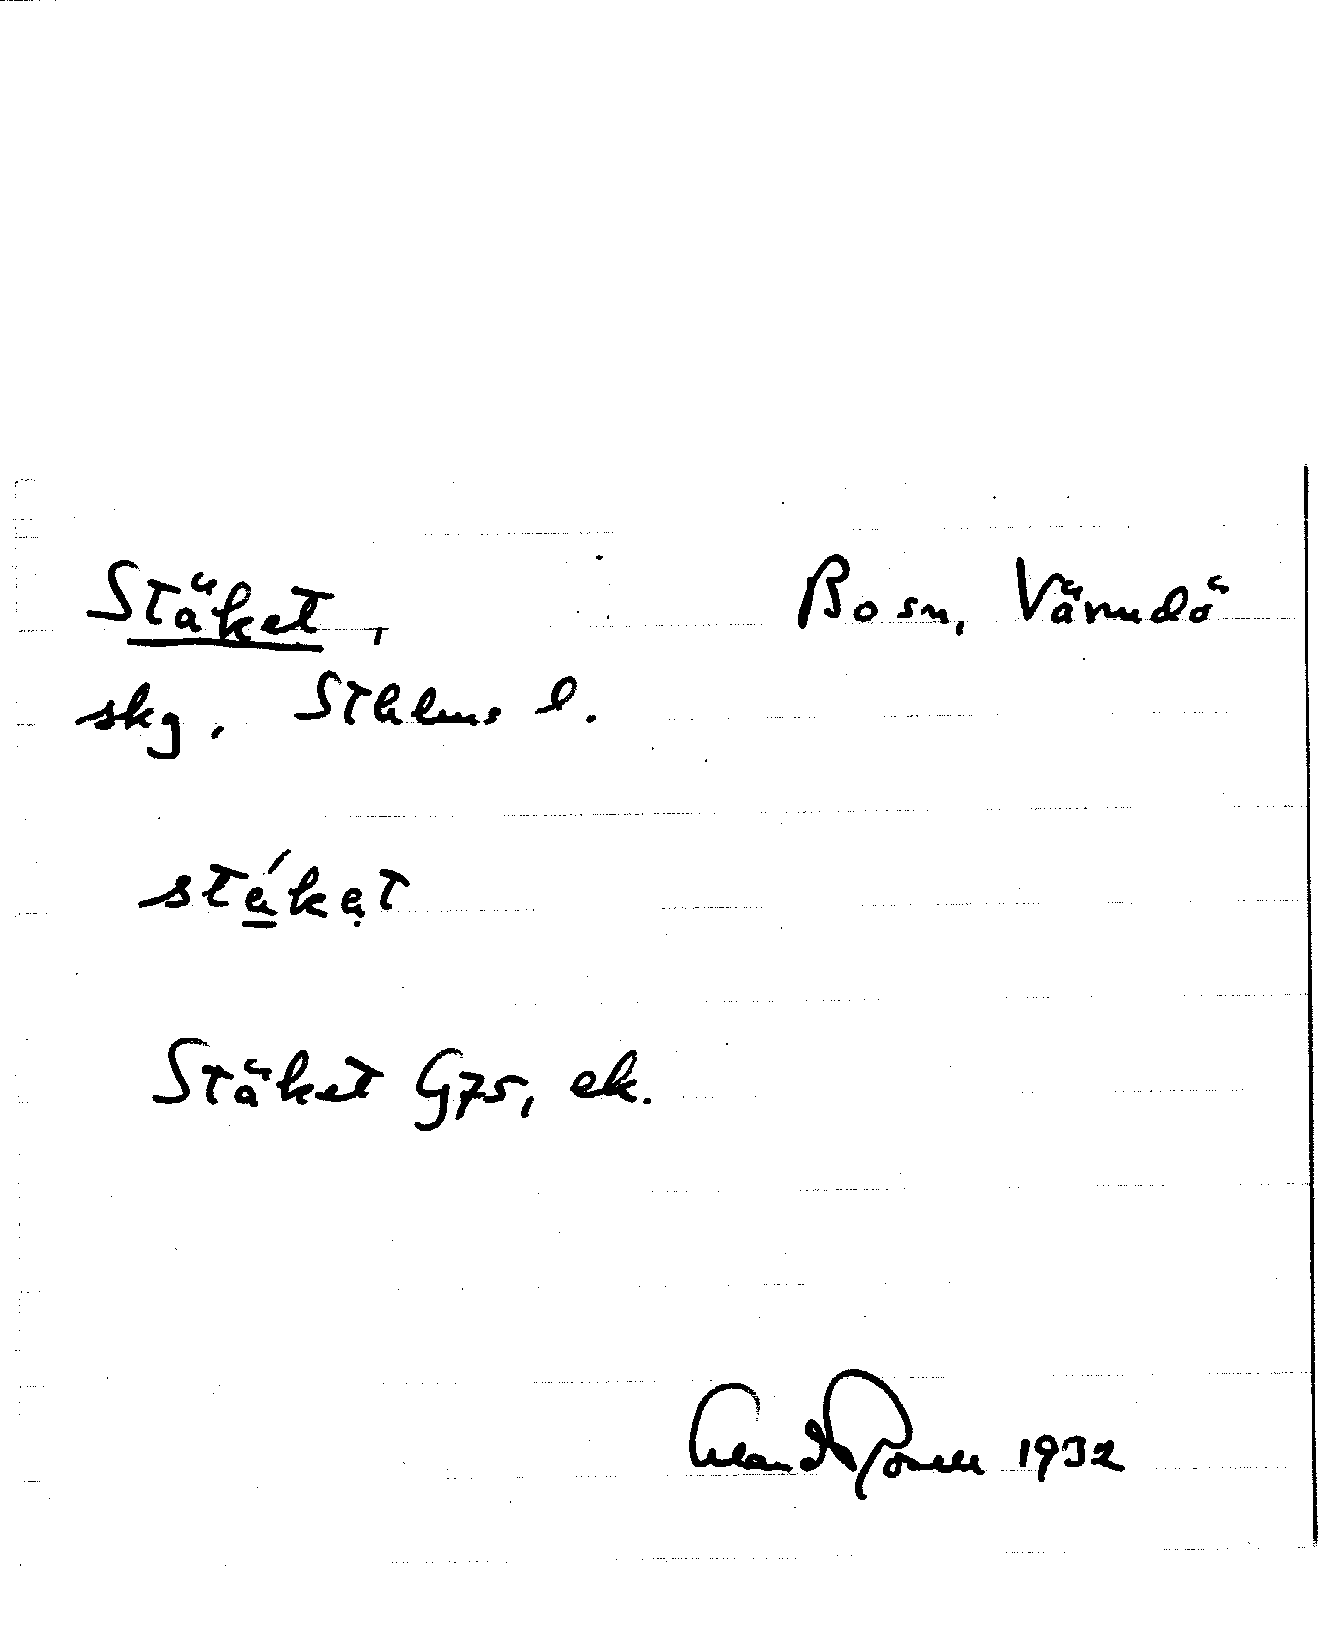 Stäket, Bo sn, Värmdö
skg. Sthlms l.
stä́kẹt
Stäket G75, ek.
1932